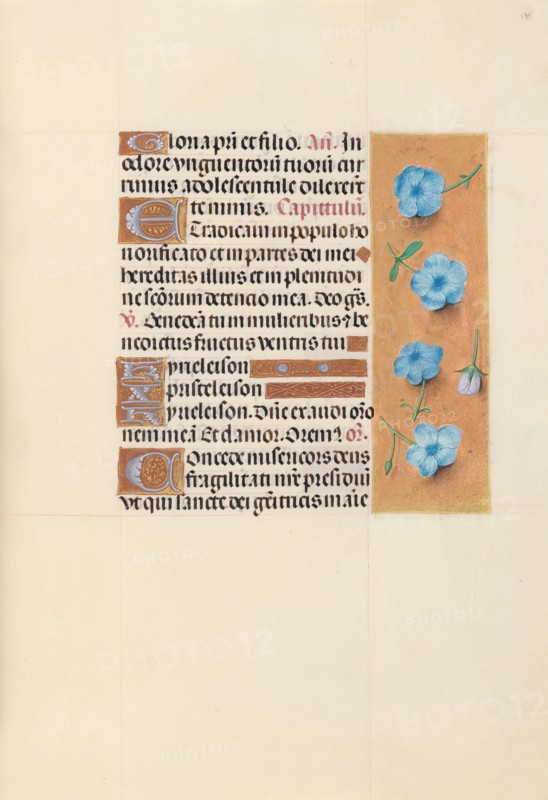 Gloria pri et filio. Añ. In
odore unguentorū tuorū cur
rimus adolescentule dilexert
te nimis. Capittulū.
Et radicaui in populo ho
norificato et in partes dei mei
hereditas illius et in plenitudi
ne scōrum detencio mea. Deo gr̄s.
V. Benedca tu in mulieribus et be
nedictus fructus ventris tui
Kyrieleison
Xpristeleison
Kyrieleison. Dn̄e exaudi orō
nem meā Et clamor. Orem⁹ or̄.
Concede misericors deus
fragilitati nr̄e presidiū
vt qui sancte dei gēitricis m aīe